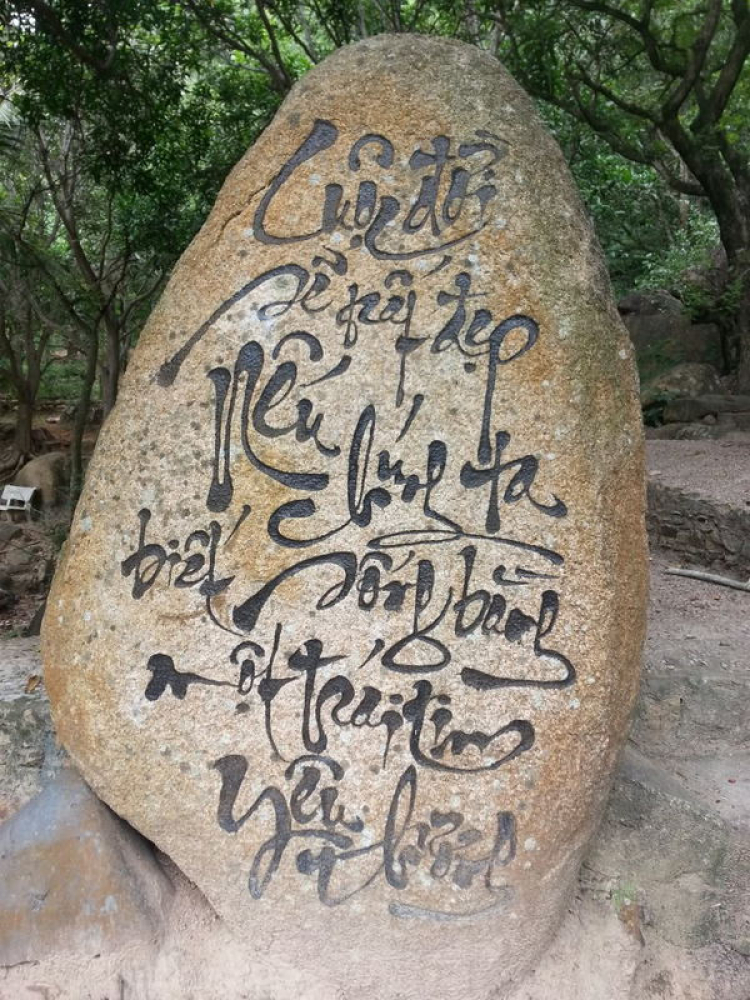 Cuộc đời
sẽ rất đẹp
Nếu chúng ta
biết sống bằng
một trái tim
Yêu thương